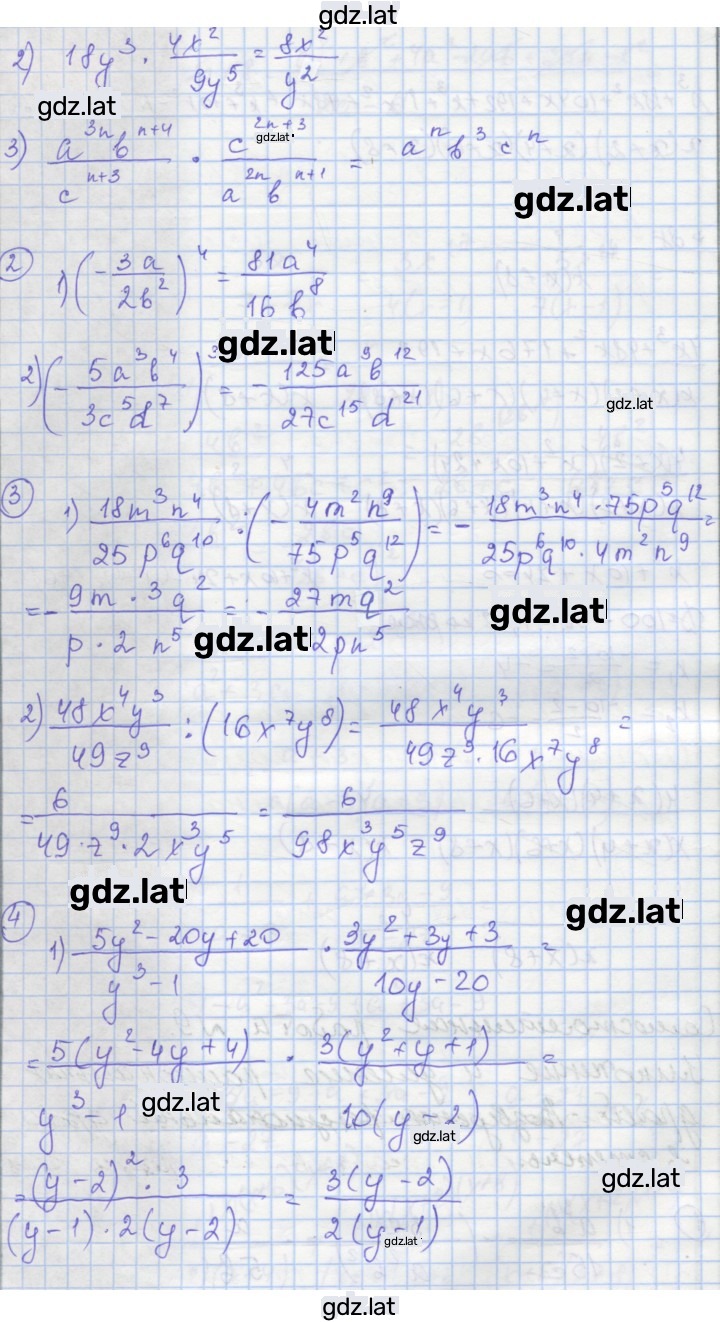 gdz.lat
2) 18y³ · 4x²/9y⁵ = 8x²/y²
gdz.lat
3) a³ⁿbⁿ⁺⁴/cⁿ⁺³ · c²ⁿ⁺³/a²ⁿbⁿ⁺¹ = aⁿb³cⁿ
gdz.lat
gdz.lat
② 1) (-3a/2b²)⁴ = 81a⁴/16b⁸
gdz.lat
2) (-5a³b⁴/3c⁵d⁷)³ = -125a⁹b¹²/27c¹⁵d²¹
gdz.lat
③ 1) 18m³n⁴/25p⁶q¹⁰ : (-4m²n⁹/75p⁵q¹²) = -18m³n⁴·75p⁵q¹²/25p⁶q¹⁰·4m²n⁹ =
= -9m·3q²/p·2n⁵ = -27mq²/2pn⁵
gdz.lat
gdz.lat
2) 48x⁴y³/49z⁹ : (16x⁷y⁸) = 48x⁴y³/49z⁹·16x⁷y⁸ =
= 6/49·z⁹·2x³y⁵ = 6/98x³y⁵z⁹
gdz.lat
gdz.lat
④ 1) 5y²-20y+20/y³-1 · 3y²+3y+3/10y-20 =
= 5(y²-4y+4)/y³-1 · 3(y²+y+1)/10(y-2) =
gdz.lat
gdz.lat
= (y-2)²·3/(y-1)·2(y-2) = 3(y-2)/2(y-1)
gdz.lat
gdz.lat
gdz.lat